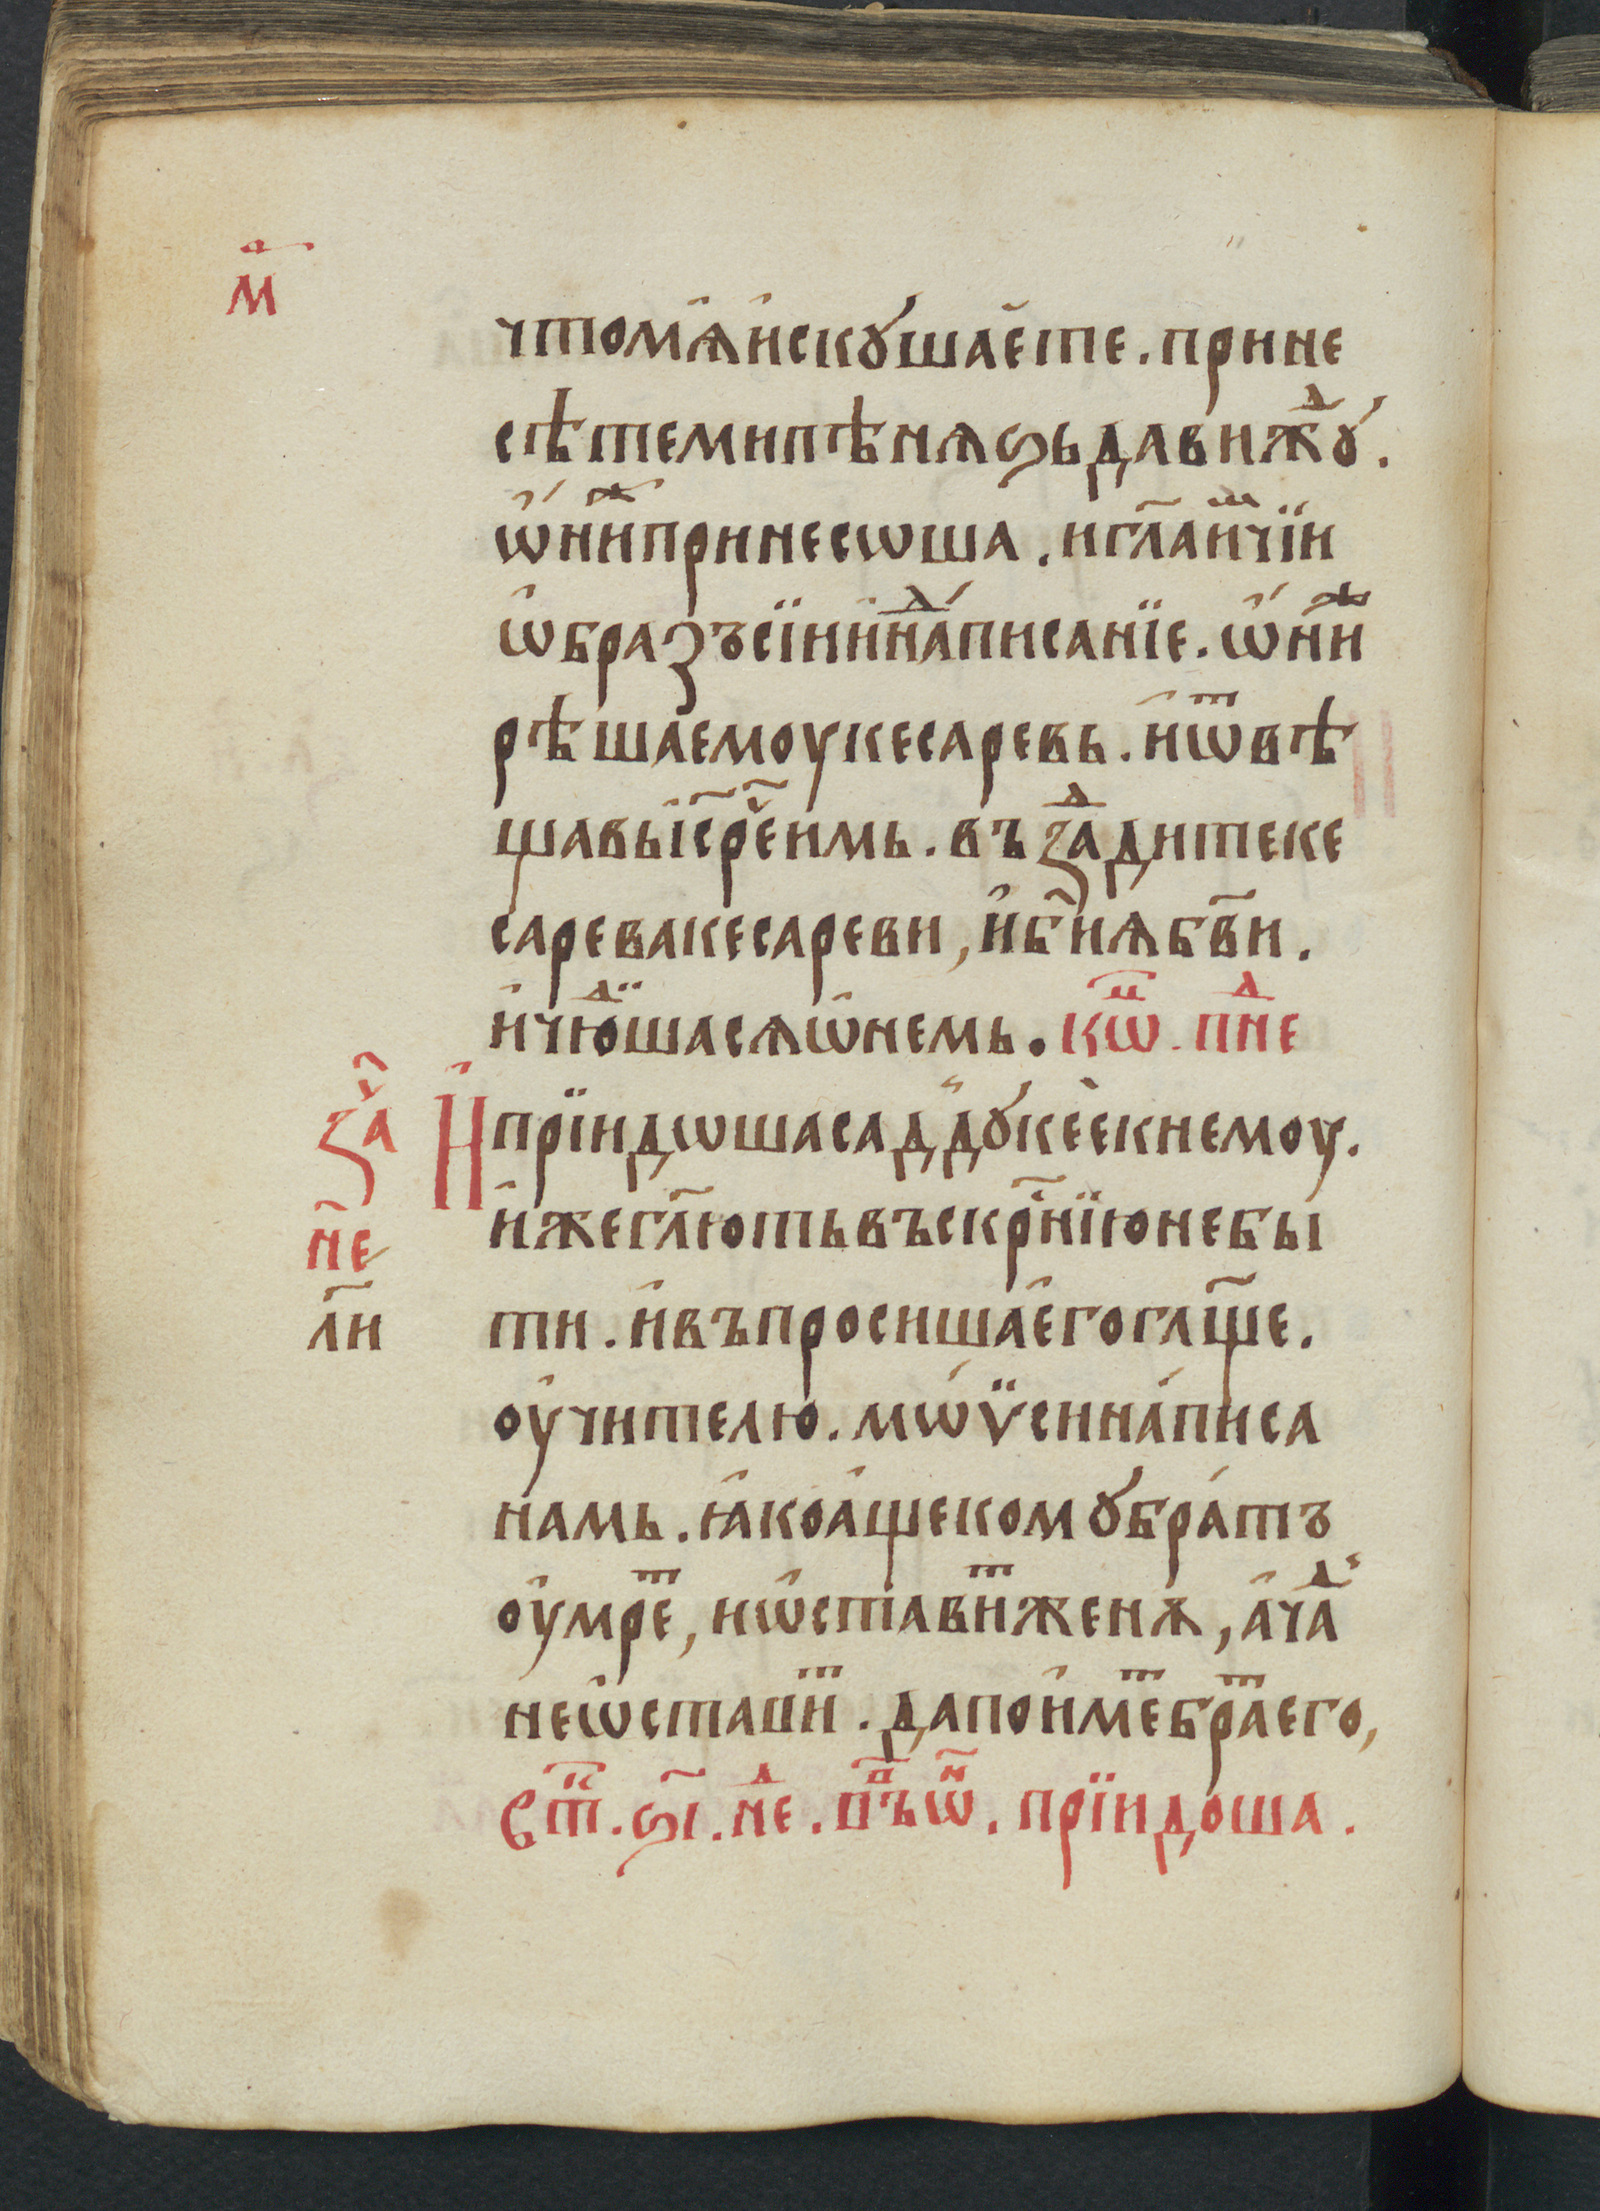 м҃а
чтомѧ҆и҆скꙋшае҆те. прине
сѣтемипѣнѧѕьдавиждꙋ.
ѡ҆ни́жпринесѡша. иг҃лаи҆мчїи
ѡ҆бразъсїинина́дписанїе. ѡ҆ни́ж
рѣшаемоукесаревь. и҆ѿвѣ
щавь і҆с҃ рече҃ имь. въздадитеке
саревакесареви, и҆б҃иѧб҃ви.
и҆чюдї҆шасѧѡ҆немь. кѡ҃н. пнⷣе
за҃ч И҆прїидѡшасаддꙋкее҆кнемоу.
не҃ и҆жег҃лютьвъскр҃нїюнебы
л҃и ти. и҆въпросишае҆гогл҃ще.
оу҆чителю. мѡѵ̈сиина́писа
намь. ꙗ҆коа҆щекомꙋбра́тъ
оу҆мреⷮ, иѡ҆ставиⷮженѧ, а҆чаⷣ
неѡ҆ставиⷮ. дапои҆меⷮбраⷮего,
Єтⷦ. ѕ҃і. неⷣ. п҃ъѡⷩ. прїидоша.